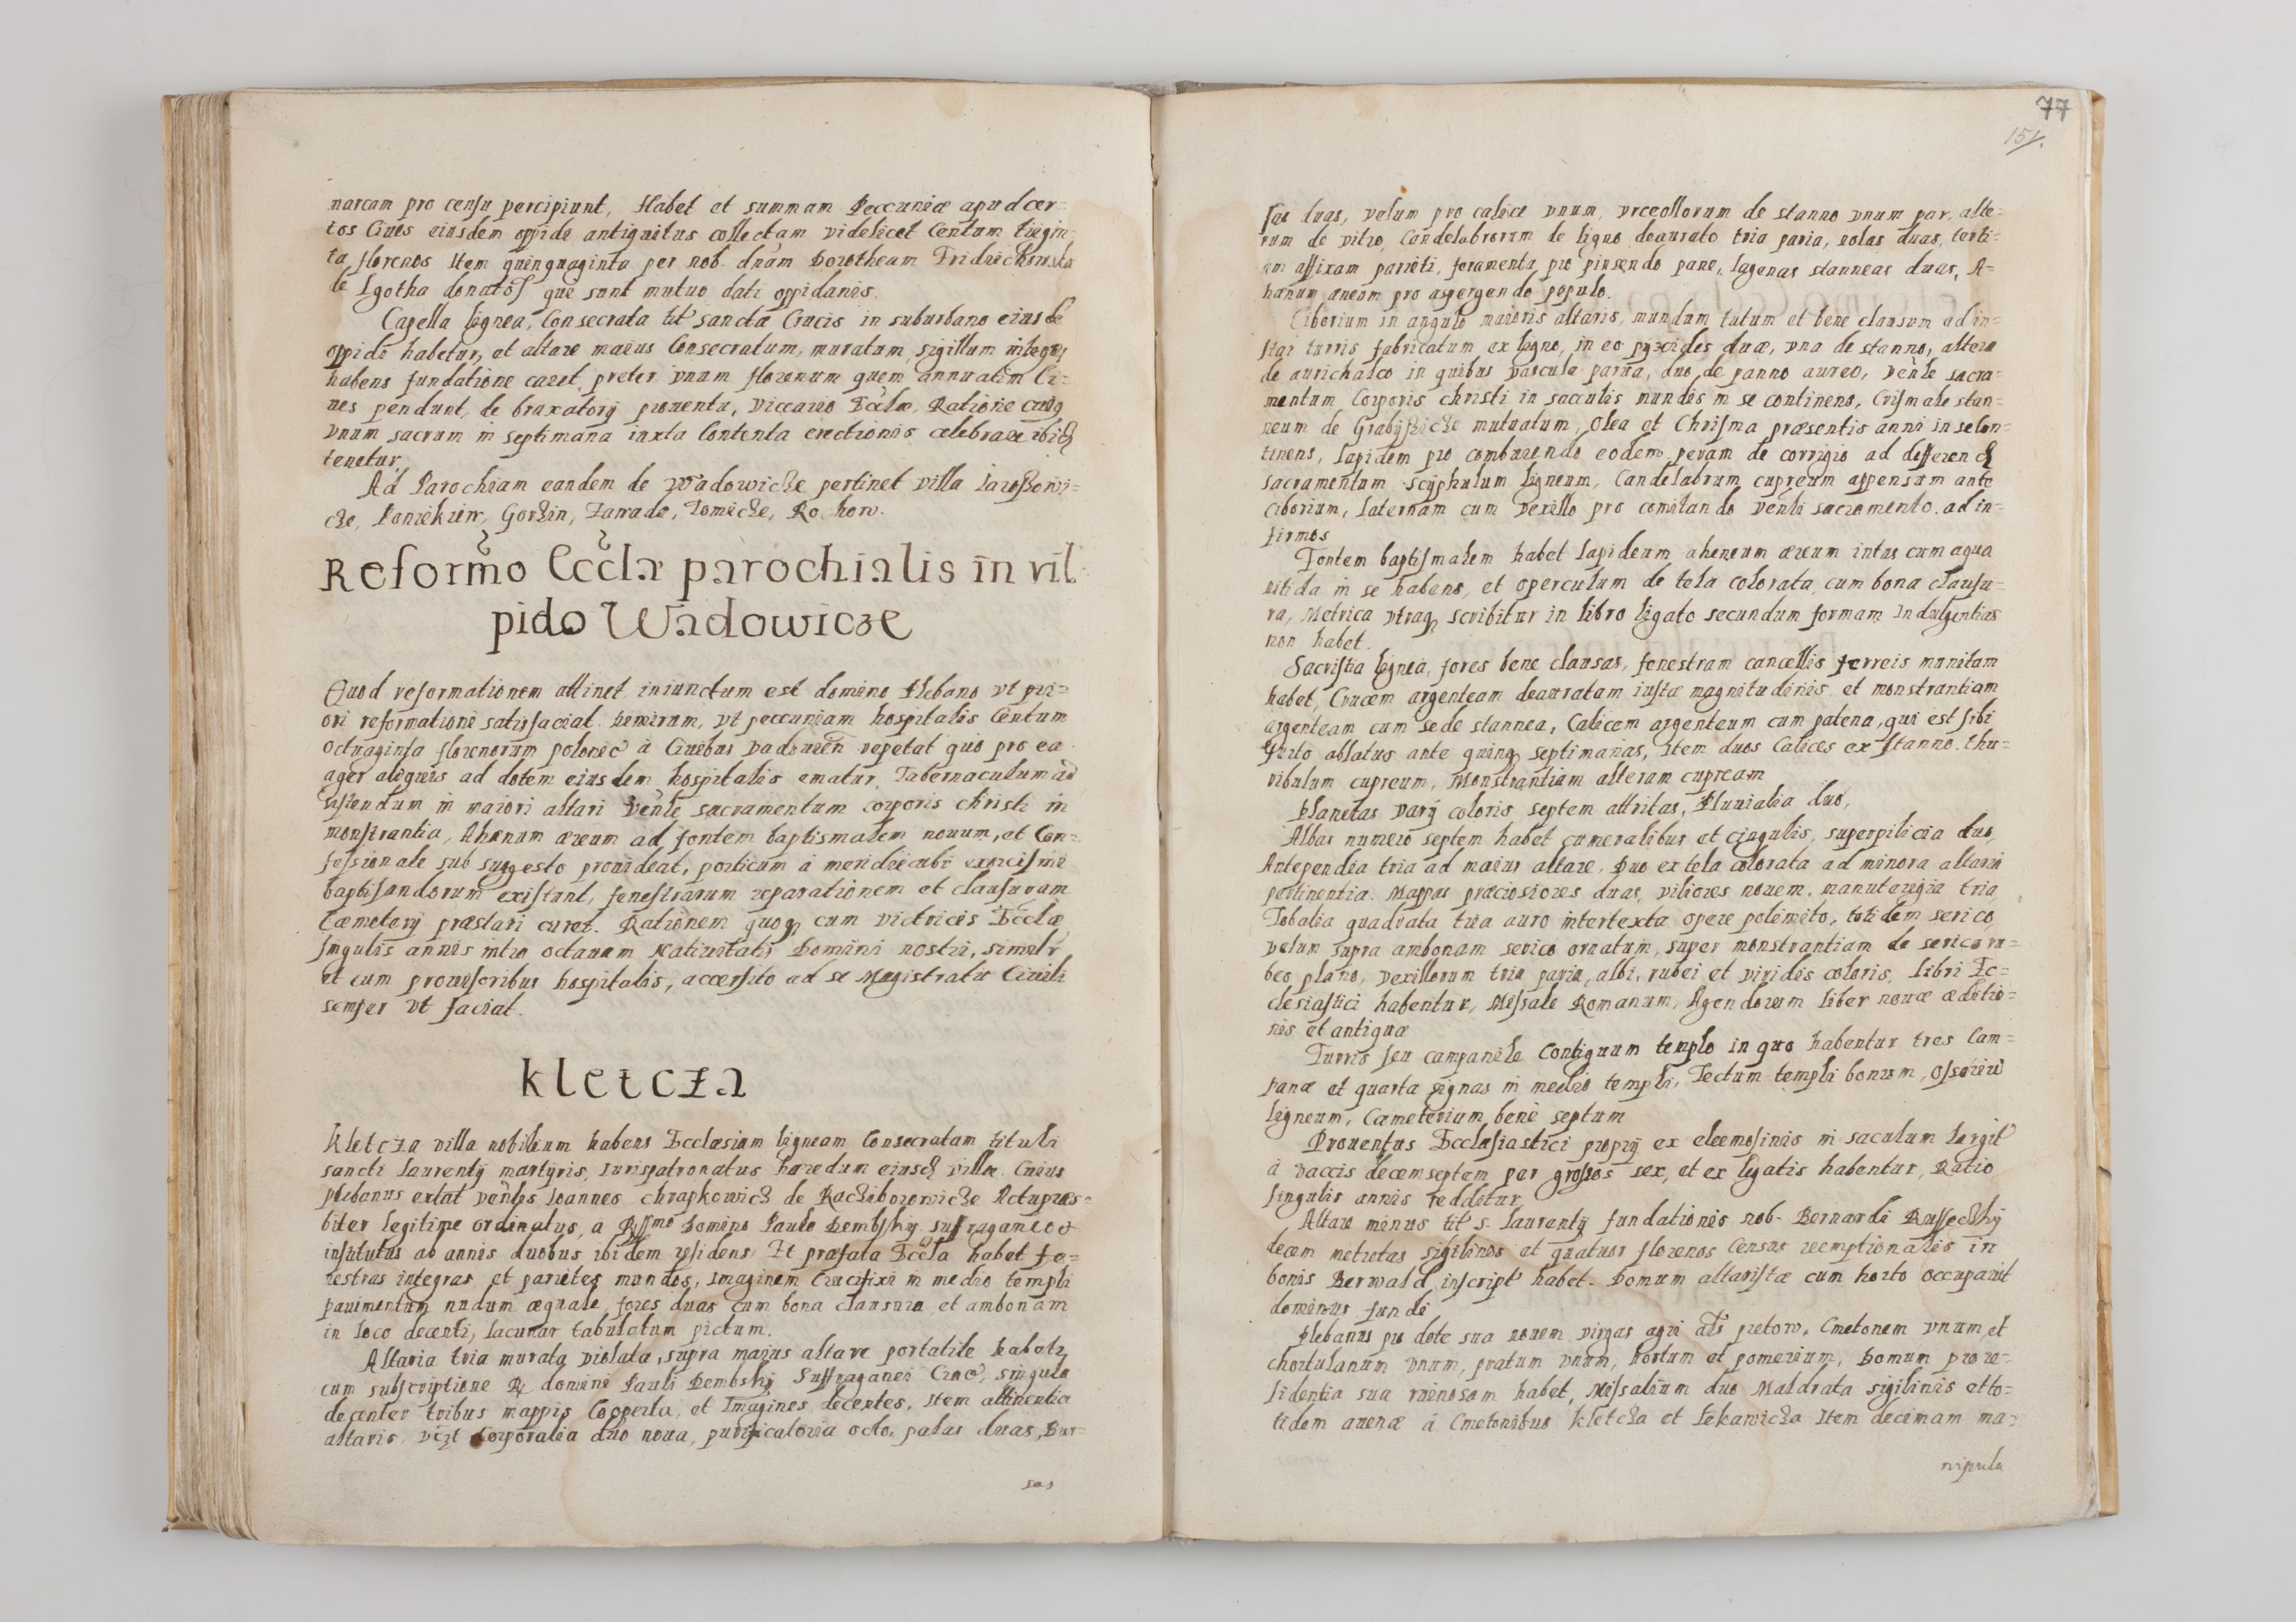 narcam pro censu percipiunt, Habet et summam Peccuniæ apud cer=
tos Ciues eiusdem oppidi antiquitus collectam videlicet Centum trigin=
ta florenos Item quinquaginta per nob. dnãm Dorotheam Fridrichowska
de Lgotha donatos que sunt mutuo dati oppidanis.
Capella lignea, Consecrata tit Sanctæ Crucis in suburbano eiusde
oppidi habetur, et altare maius Consecratum, muratum, sigillum integrũ
habens fundatione caret, preter vnum florenum quem annuatim Ci=
ues pendunt, de braxatorij prouentu, Viccario Eccłæ, Ratione cuiꝗ
vnum sacrum in septimana iuxta Contenta erectionis celebrare ibid
tenetur.
Ad Parochiam eandem de Wadowicze pertinet villa Iaroszowi=
cze, Ponikiew, Gorzin, Zawade, Tomicze, Rokow.
Reformõ Eccła parochialis in vil
pido Wadowicze
Quod reformationem attinet iniunctum est domino Plebano vt pri=
ori reformationi satisfaciat. Nimirum, vt peccuniam hospitalis Centum
octuaginta florenorum polonic à Ciuibus Vadouien repetat quo pro ea
ager aliquis ad dotem eiusdem hospitalis ematur. Tabernaculum ad
in maiori altari Venłe sacramentum corporis christi in
monstrantia, Ahænum æreum ad fontem baptismalem nouum, et Con=
fessionale sub suggesto prouideat, porticum à meridie ubi exorcismi
baptisandorum existant, fenestrarum reparationem et clausuram
Cæmeterij præstari curet. Rationem quoꝗ cum victricis Ecclæ
singulis annis intro octauam Natiuitatis Domini nostri, similr
et cum prouisoribus hospitalis, accersito ad se Magistratu Ciuili
semper vt faciat.
Kletcza
Kletcza villa nobilium habens Ecclæsiam ligneam Consecratam tituli
sancti Laurentij martyris, Iurispatronatus hæredum eiusd villæ. Cuius
plebanus extat Venłis Ioannes Chrapkowicz de Racziborowicze Actu præs=
biter legitime ordinatus, a Rssmo Domino Paulo Dembskij suffraganeo &
institutus ab annis duobus ibidem residens. Et præfata Eccła habet fe=
nestras integras et parietes mundos, imaginem Crucifixi in medio templi
pauimentum nudum æquale, fores duas cum bona clausura et ambonam
in loco decenti, lacunar tabulatum pictum.
Altaria tria murata violata, supra maius altare portatile habetr
cum subscriptione R domini Pauli Dembskij Suffraganei Crac, singula
decenter tribus mappis Cooperta, et Imagines decentes. Item attinentia
altaris vczt Corporalia duo noua, purificatoria octo, palas duas, Bur=
sas
77
151.
sas duas, velum pro calice vnum, vrceollorum de stanno vnum par, alte=
rum de vitro, Candelabrorum de ligno deaurato tria paria, nolas duas, terti=
am affixam parieti, feramenta pro pinsendo pane, lagenas stanneas duas, A=
hænum æneum pro aspergendo populo.
Ciborium in angulo maioris altaris, mundum tutum et bene clausum ad in=
star turris fabricatum ex ligno, in eo pixides duæ, vna de stanno, altera
de aurichalco in quibus vascula parua, duo de panno aureo, Venłe sacra=
mentum Corporis christi in sacculis mundis in se continens, Crismale stan=
neum de mutuatum, Olea et Chrisma præsentis anni in se con=
tinens, lapidem pro comburendo eodem, peram de corrigio ad defferend
sacramentum scyphulum ligneum, Candelabrum cupreum appensum ante
ciborium, laternam cum vexillo pro comitando Venłi sacramento ad in=
firmos
Fontem baptismalem habet lapideum aheneum æreum intus cum aqua
nitida in se habens, et operculum de tela colorata, cum bona clausu=
ra, Metrica vtraꝗ scribitur in libro ligato secundum formam Indulgentias
non habet.
Sacristia lignea, fores bene clausas, fenestram cancellis ferreis munitam
habet, Crucem argenteam deauratam iustæ magnitudinis, et monstrantiam
argenteam cum sede stannea, Calicem argenteum cum patena, qui est sibi
furto ablatus ante quinꝗ septimanas, Item duos Calices ex stanno. thu=
ribulum cupreum, Monstrantiam alteram cupream
Planetas varij coloris septem attritas, Pluuialia duo,
Albas numero septem habet cum eralibus et cingulis, superpilicia duo,
Antependia tria ad maius altare, Duo ex tela colorata ad minora altaria
pertinentia. Mappas præciosiores duas, viliores nouem, manutergia tria
Tobalia quadrata tria auro intertexta opere polimito, totidem serico,
velum supra ambonam serico ornatum, super monstrantiam de serico ru=
beo plano, vexillorum tria paria, albi, rubei et viridis coloris, Libri Ec=
clesiastici habentur, Missale Romanum, Agendorum liber nouæ æditio=
nis et antiquæ
Turris seu campanile Contiguum templo in quo habentur tres Cam=
panæ et quarta signas in medio templi, Tectum templi bonum, Ossoriũ
ligneum, Cameterium bene septum
Prouentus Ecclæsiastici proprij ex eleemosinis in saculum largit
à vaccis decemseptem per grossos sex, et ex legatis habentur, Ratio
singulis annis redditur
Altare minus tit S. Laurentij fundationis nob. Bernardi
decem metretas siliginis et quatuor florenos Census reemptionalis in
bonis Berwald inscript habet. Domum altaristæ cum horto occupauit
dominus fundi
Plebanus pro dote sua nouem virgas agri als pretow, Cmetonem vnum, et
chortulanum vnum, pratum vnum, hortum et pomerium, Domum pro re=
sidentia sua ruinosam habet, Missalium duo Maldrata siliginis etto=
tidem auenæ à Cmetonibus Kletcza et Lekawicza Item decimam ma=
nipula